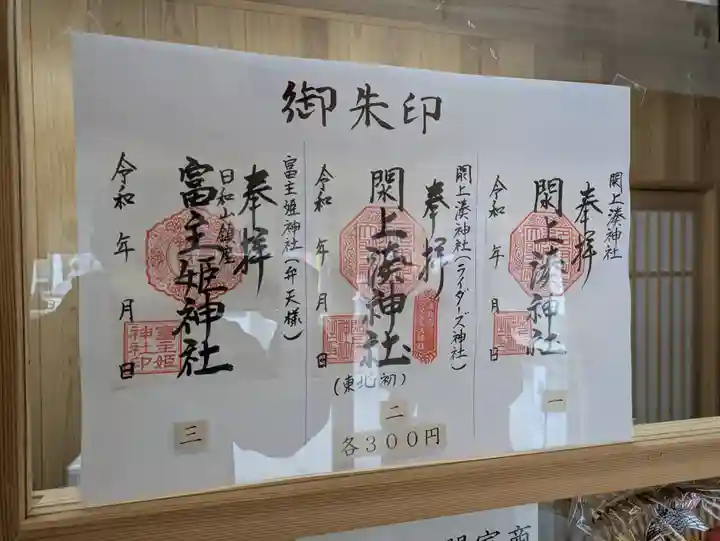 御朱印
閖上湊神社
奉拝
閖上湊神社
令和 年 月 日
一
閖上湊神社(ライダーズ神社)
奉拝
閖上湊神社
令和 年 月 日
(東北初)
二
富主姫神社(弁天様)
奉拝
日和山鎮座
富主姫神社
令和 年 月 日
富主姫
神社印
三
各300円